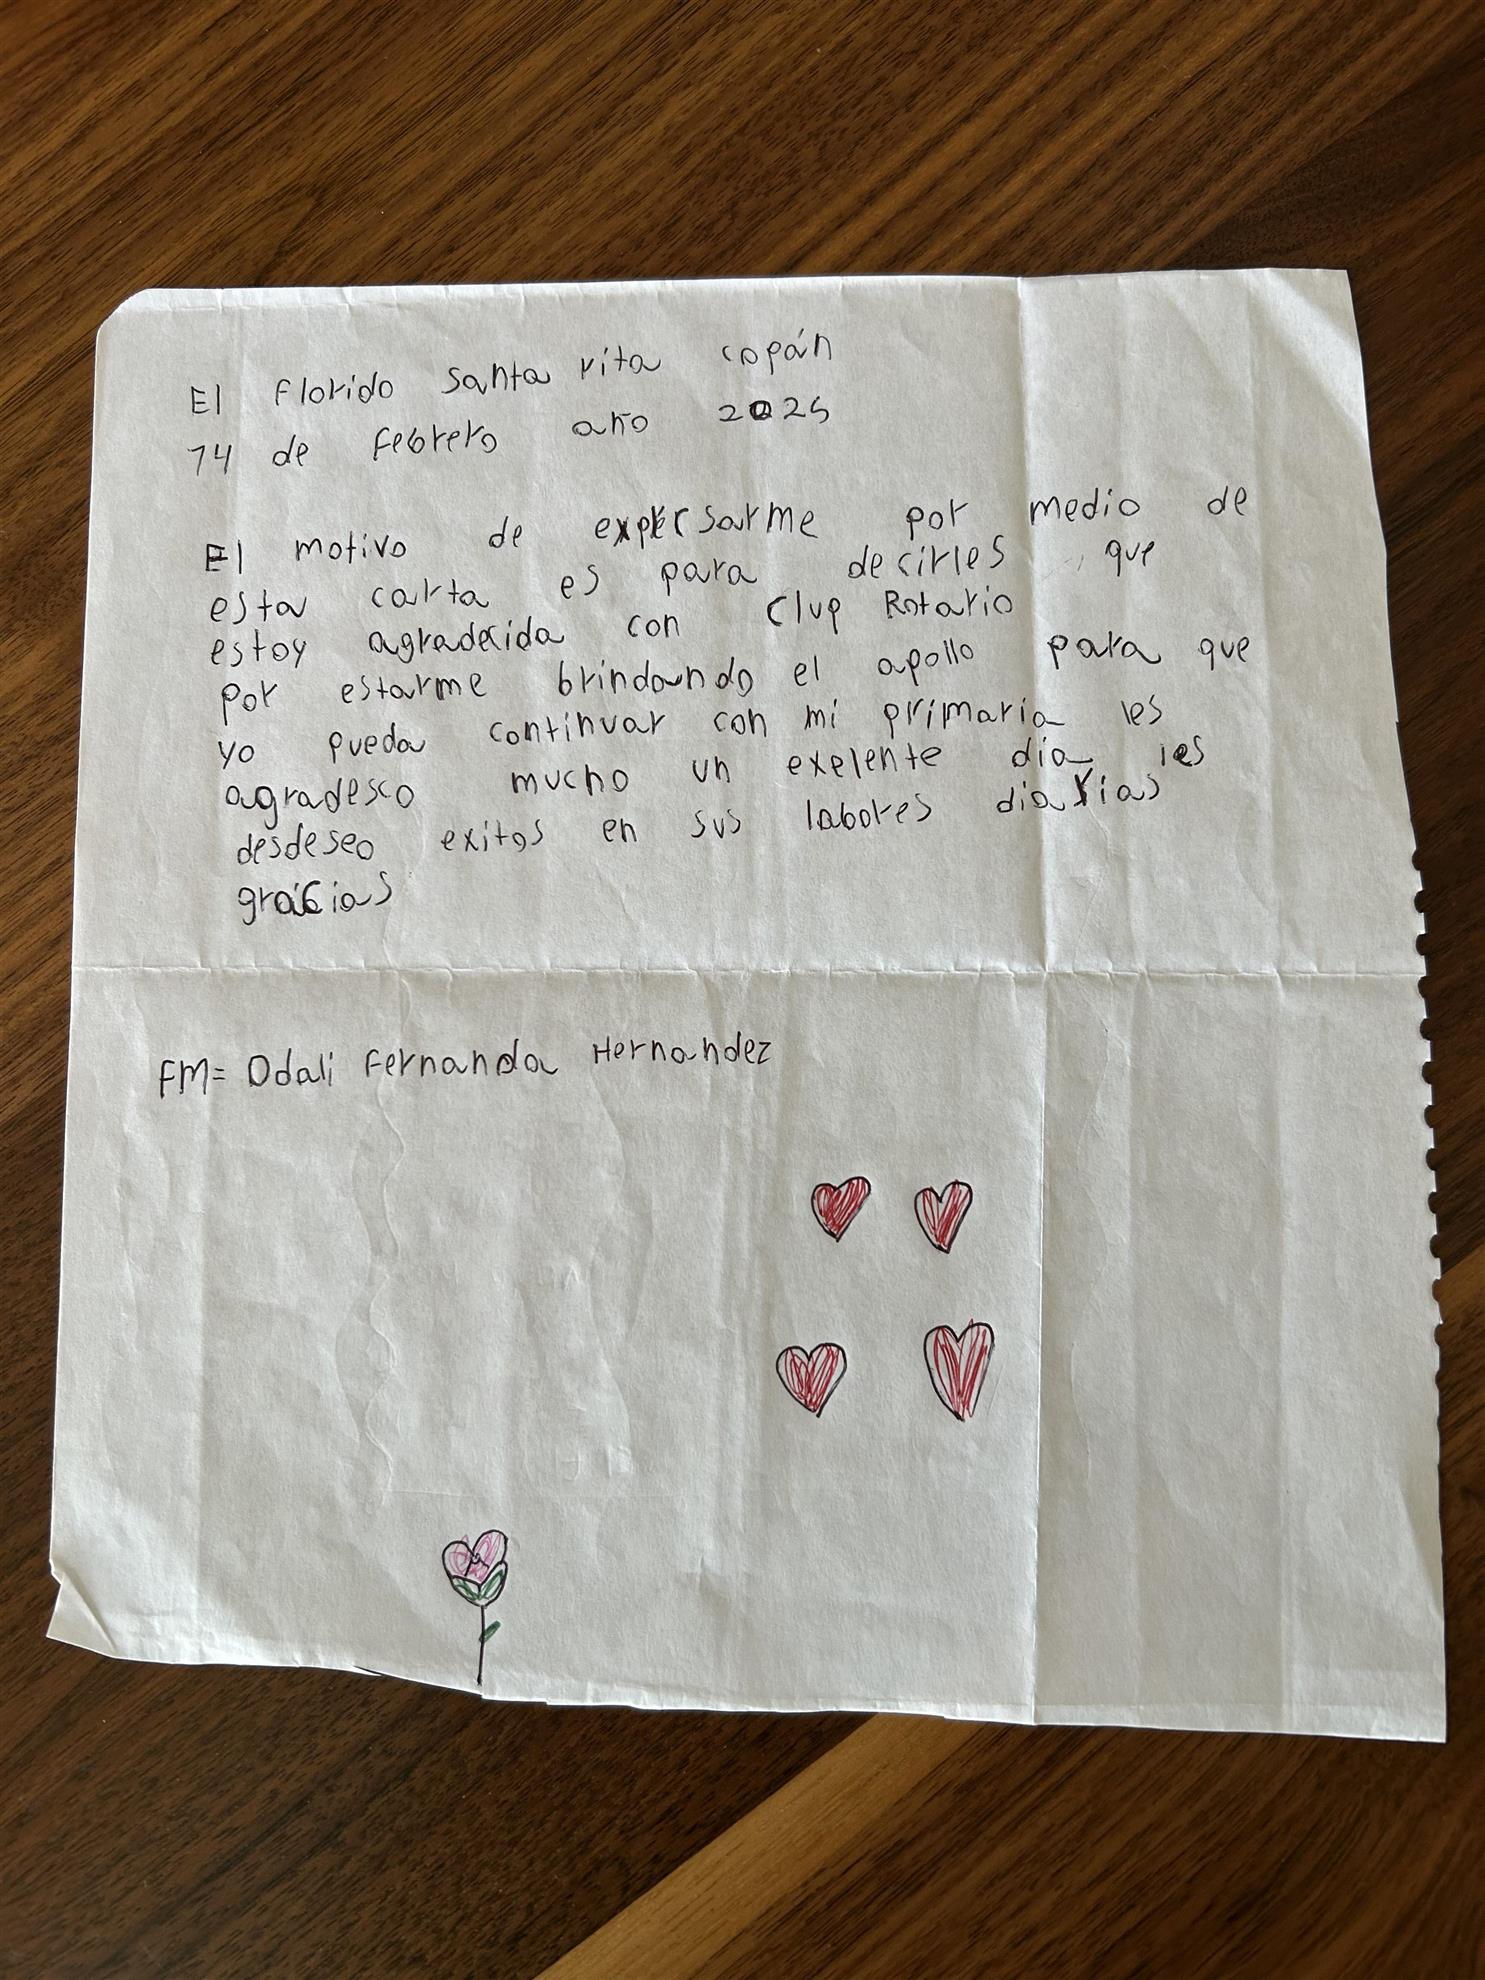 El Florido santa rita copán
14 de Febrero año 2025
El motivo de expersarme por medio de
esta carta es para decirles que
estoy agradecida con Clup Rotario
por estarme brindando el apollo para que
yo pueda continuar con mi primaria les
agradesco mucho un exelente dia les
desdeseo exitos en sus labores diarias
gracias
FM= Odali Fernanda Hernandez